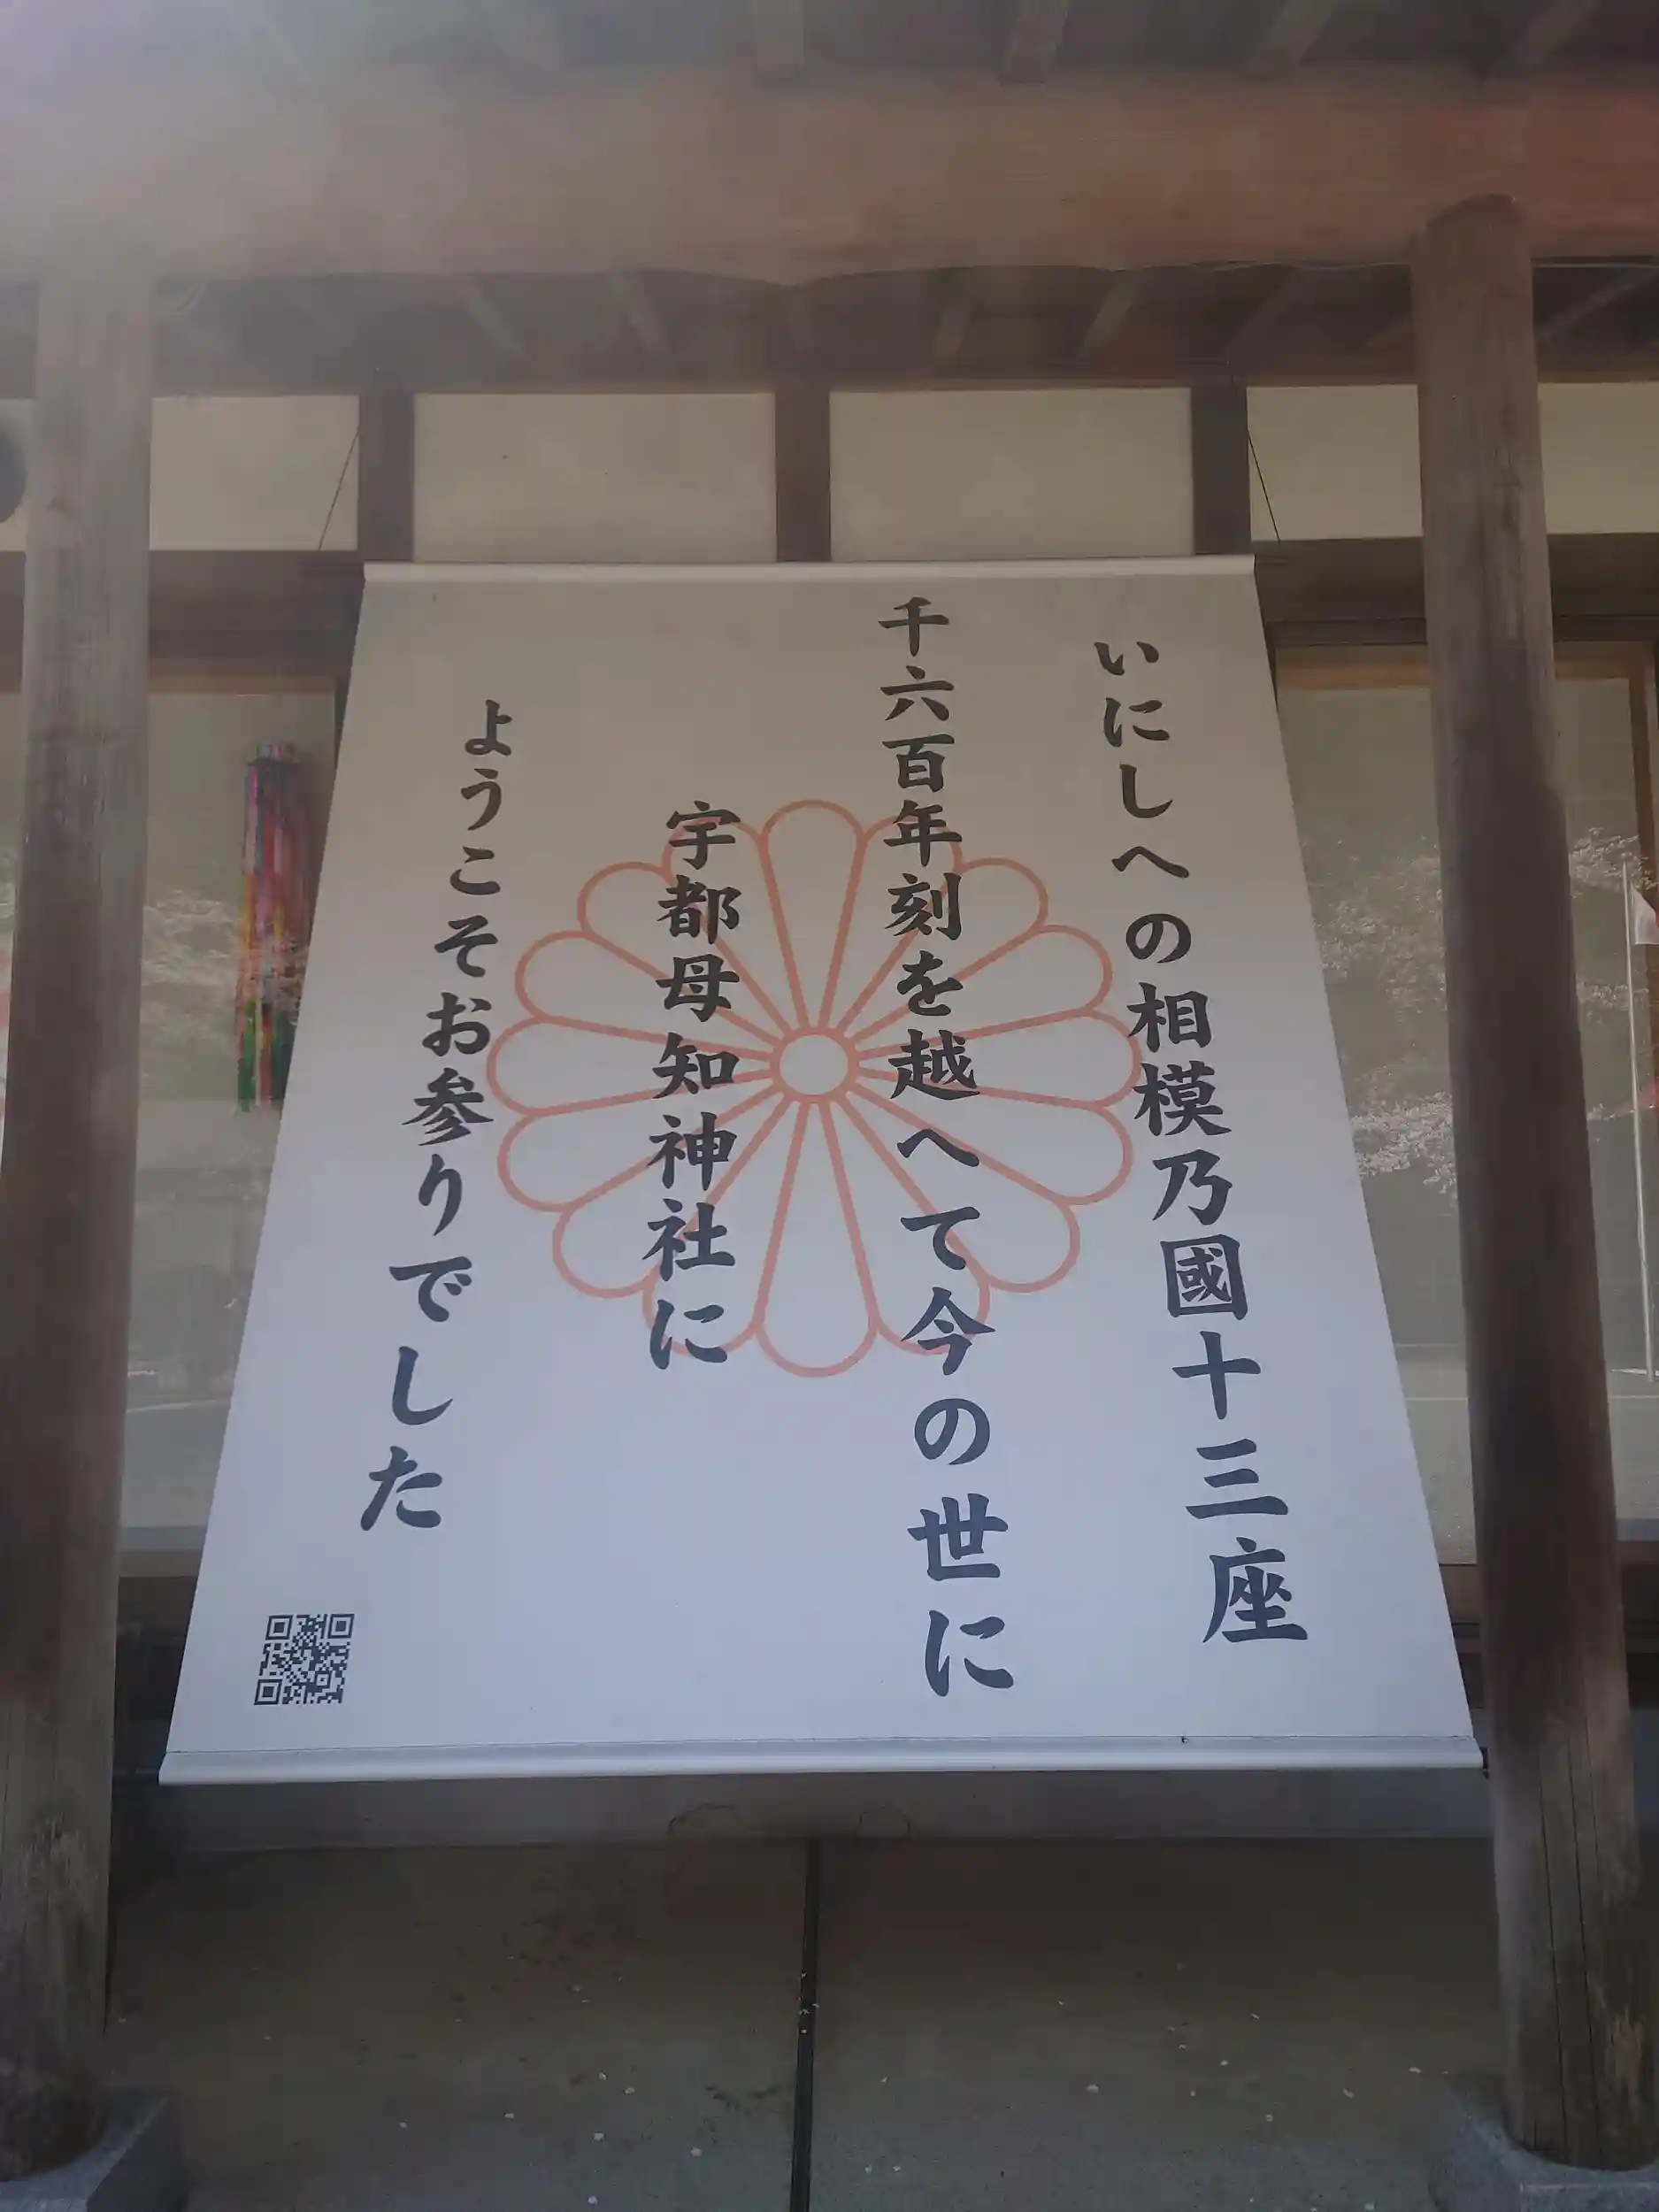 いにしへの相模乃國十三座
千六百年刻を越へて今の世に
宇都母知神社に
ようこそお参りでした